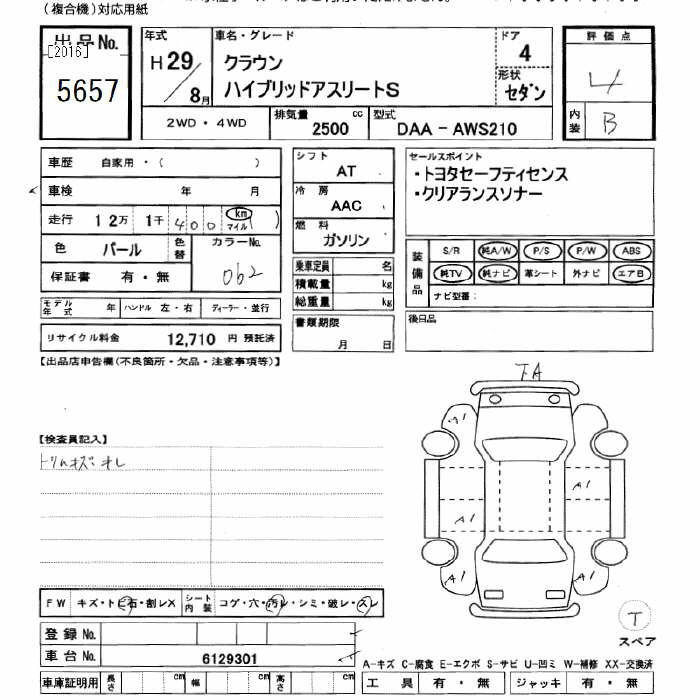 (複合機)対応用紙
出品No.
[2016]
5657
年式
H29/8月
車名・グレード
クラウン
ハイブリッドアスリートS
ドア
4
形状
セダン
2WD・4WD
排気量
2500 cc
型式
DAA-AWS210
評価点
4
内装
B
車歴 自家用・( )
車検 年 月
走行 12万 1千 400 km マイル ( )
色 パール 色替 カラーNo. 062
保証書 有・無
モデル年式 年 ハンドル 左・右 ディーラー・並行
リサイクル料金 12,710 円 預託済
シフト
AT
冷房
AAC
燃料
ガソリン
乗車定員 名
積載量 kg
総重量 kg
書類期限
月 日
セールスポイント
・トヨタセーフティセンス
・クリアランスソナー
装備品
S/R 純A/W P/S P/W ABS
純TV 純ナビ 革シート 外ナビ エアB
ナビ型番:
後日品
【出品店申告欄(不良箇所・欠品・注意事項等)】
【検査員記入】
トリムキズ・オレ
FA
A1
A1
A1
A1
A1
T
スペア
FW キズ・トビ石・割レX シート内装 コゲ・穴・汚レ・シミ・破レ・スレ
登録No.
車台No. 6129301
車庫証明用 長さ cm 幅 cm 高さ cm
A-キズ C-腐食 E-エクボ S-サビ U-凹ミ W-補修 XX-交換済
工具 有・無 ジャッキ 有・無